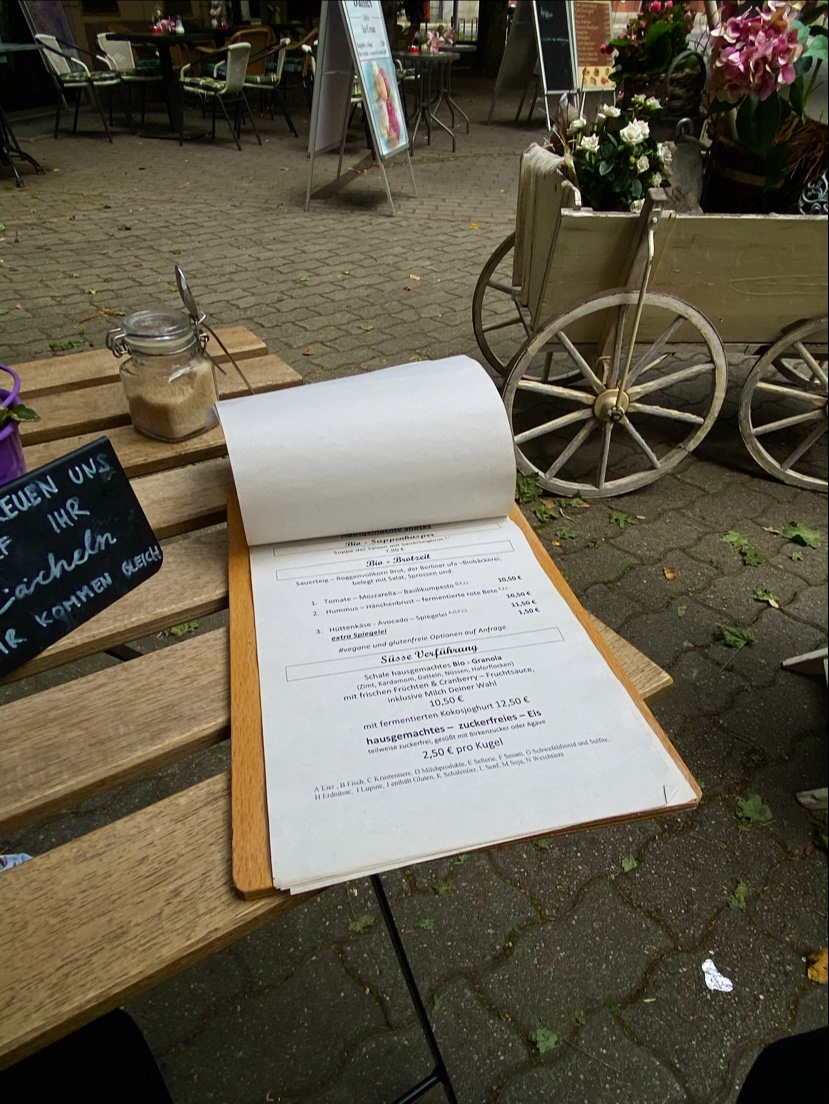 hausgemachte Snacks
Bio - Suppenkasper
Suppe der Saison mit Sauerteigbrot
7,50 €
Bio - Brotzeit
Sauerteig – Roggenvollkorn Brot, der Berliner ufa –Biobäckerei,
belegt mit Salat, Sprossen und:
1. Tomate – Mozzarella – Basilikumpesto 10,50 €
2. Hummus – Hänchenbrust – fermentierte rote Bete 10,50 €
11,50 €
3. Hüttenkäse - Avocado – Spiegelei 1,50 €
extra Spiegelei
#vegane und glutenfreie Optionen auf Anfrage
Süsse Verführung
Schale hausgemachtes Bio - Granola
(Zimt, Kardamom, Datteln, Nüssen, Haferflocken)
mit frischen Früchten & Cranberry – Fruchtsauce,
inklusive Milch Deiner Wahl
10,50 €
mit fermentierten Kokosjoghurt 12,50 €
hausgemachtes – zuckerfreies – Eis
teilweise zuckerfrei, gesüßt mit Birkenzucker oder Agave
2,50 € pro Kugel
A Eier , B Fisch, C Krustentiere, D Milchprodukte, E Sellerie, F Sesam, G Schwefeldioxid und Sulfite,
H Erdnüsse, I Lupine, J enthält Gluten, K Schalentier, L Senf, M Soja, N Weichtiere
REUEN UNS
F IHR
Lächeln
IR KOMMEN GLEICH